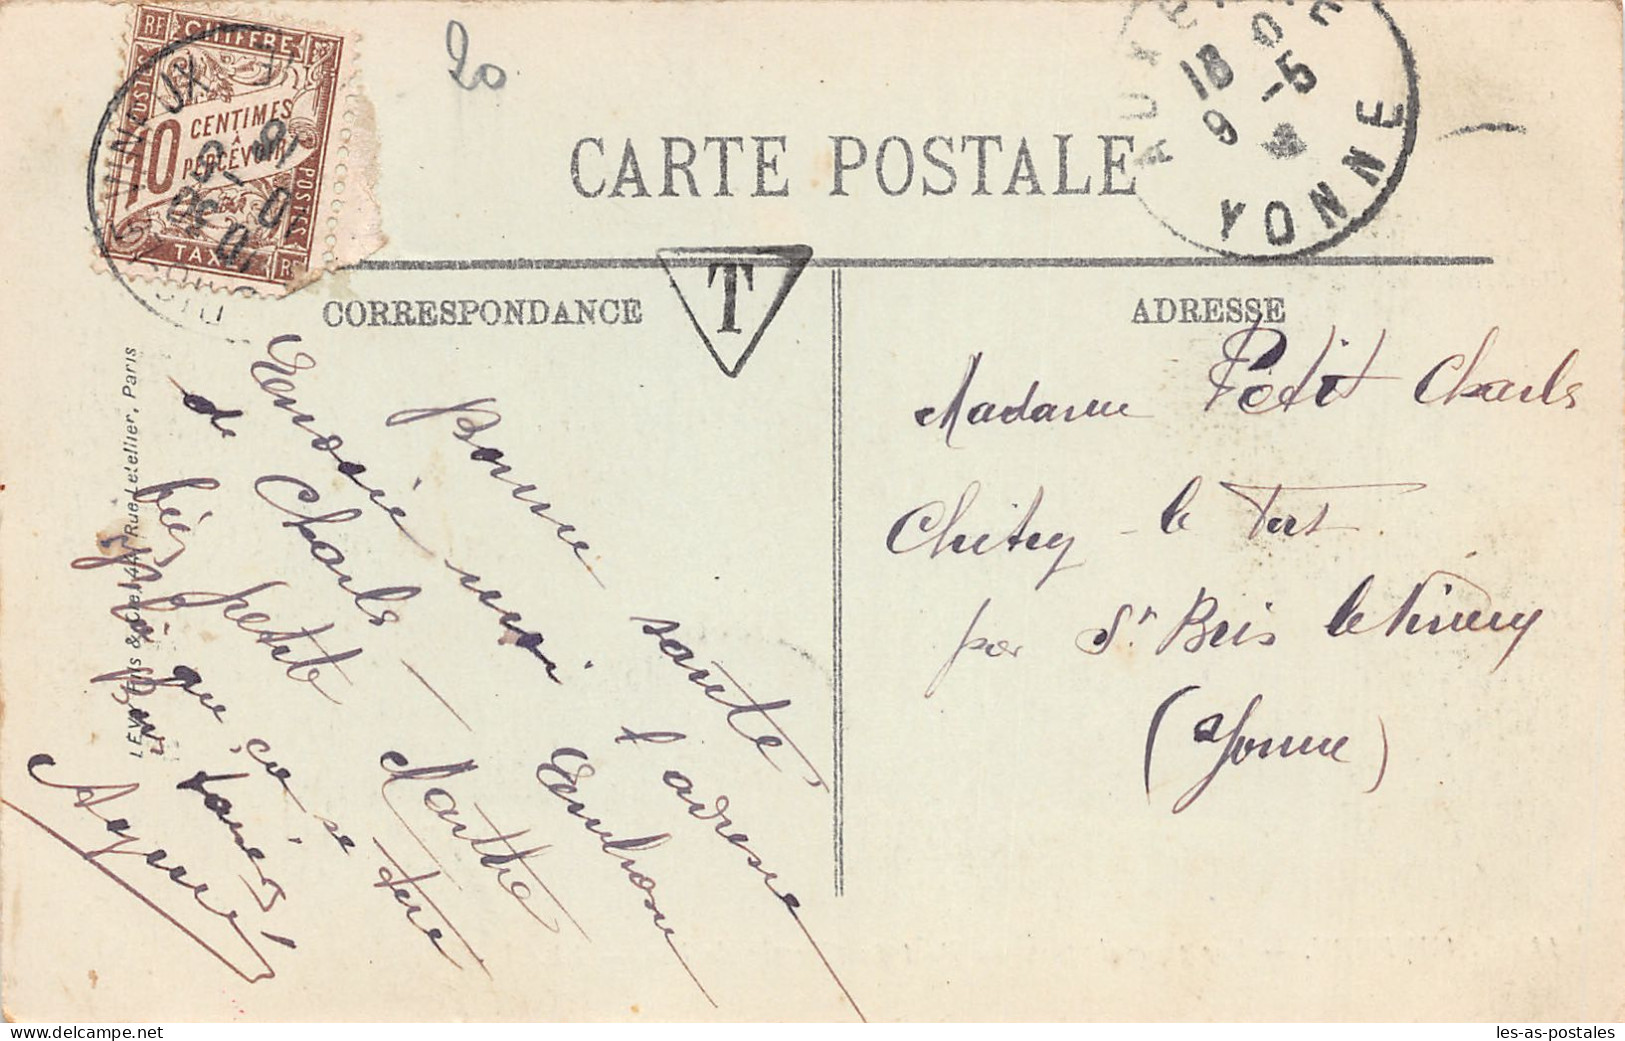 RF CHIFFRE
POSTES
10 CENTIMES
À
PERCEVOIR
POSTES
TAXE RF
20
AUXERRE
18 0
9 -5
YONNE
CARTE POSTALE
T
CORRESPONDANCE
ADRESSE
Bonne santé,
Envoie moi l'adresse
de Charls
petite Marthe
que ce se
Madame Petit Charls
Chitry - le Fort
par St Bris le Vineux
(Yonne)
LEVY Fils & Cie, 44, Rue Letellier, Paris
www.delcampe.net
les-as-postales